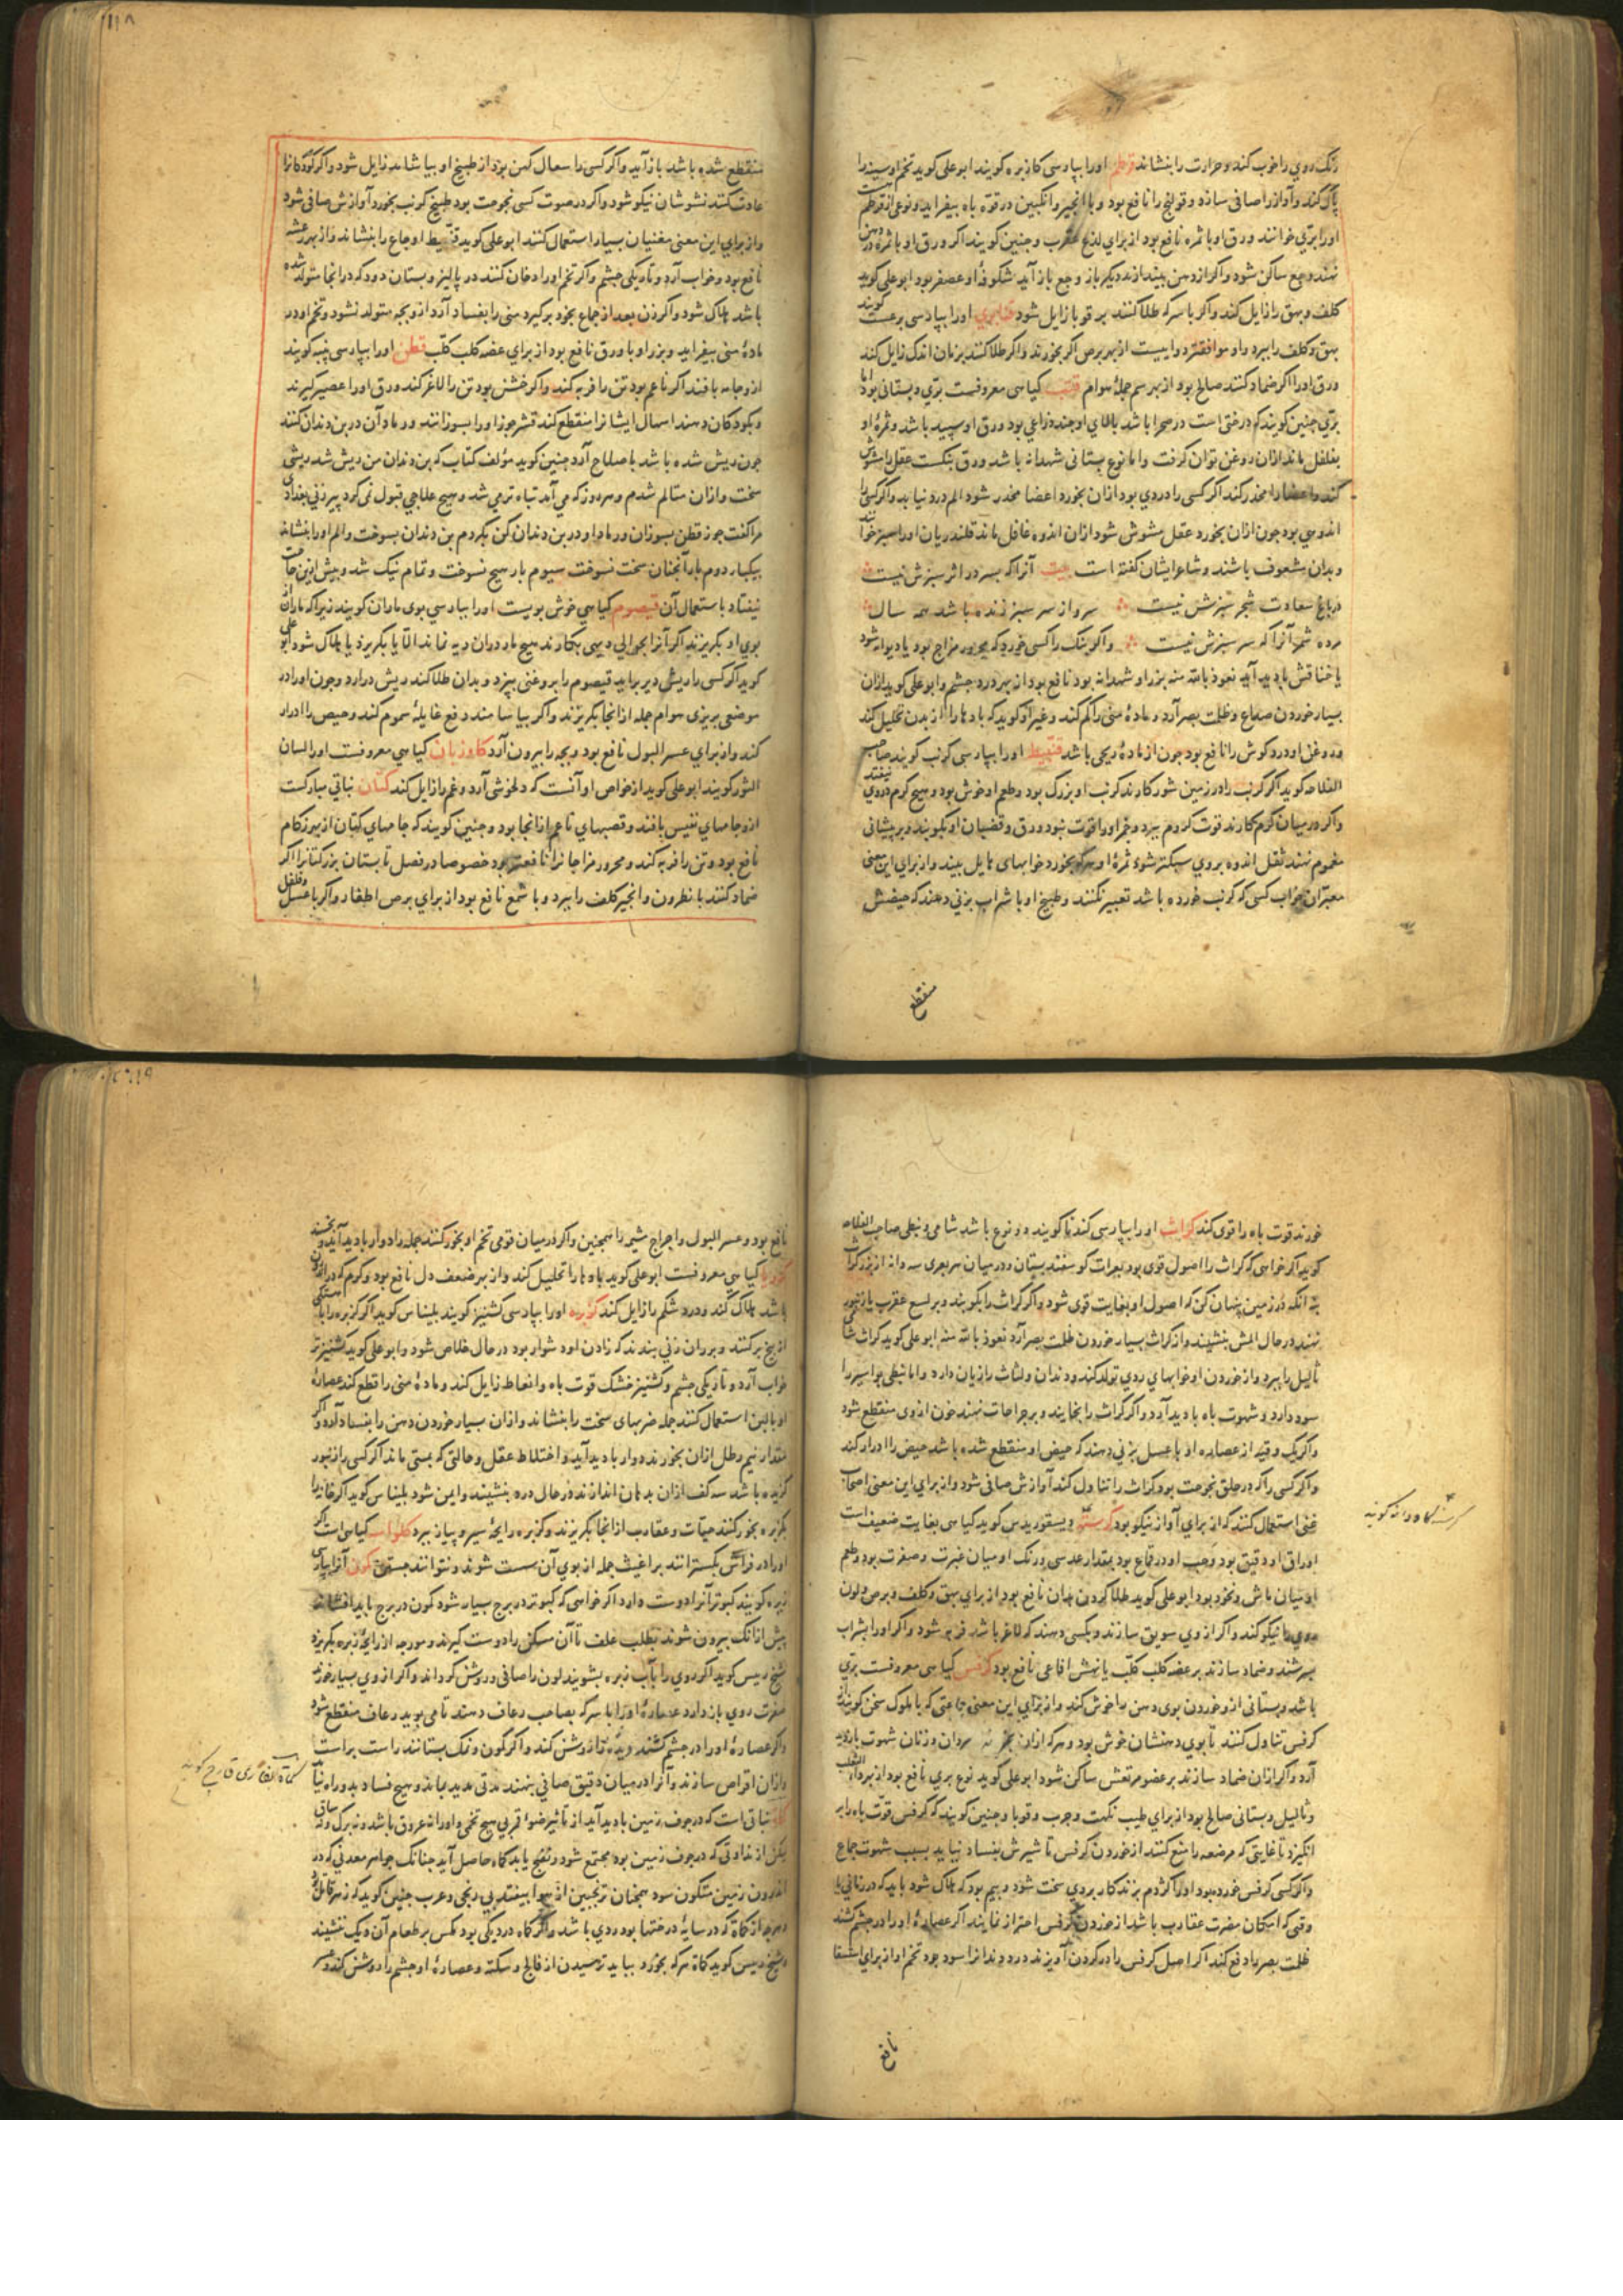 رنک روی را خوب کند و حرارت را بنشاند قرطم اورا بپارسی کازبره کویند ابو علی کوید تخم او سینه را
پاک کند و آواز را صافی سازد و قولنج را نافع بود و با انجیر و انکبین در قوه باه بیفزاید و نوعی از قرطم
اورا بری خوانند ورق او با ثمره نافع بود از برای لذع عقرب و جنین کویند اکر ورق او با ثمره در دهن
نهند وجع ساکن شود و اکر از دهن بیندازند دیکر باز وجع باز آید شکوفهٔ او عصفر بود ابو علی کوید
کلف و بهق را زایل کند و اکر با سرکه طلا کنند بر قوبا زایل شود اورا بپارسی برغست کویند
بهق و کلف را ببرد و او موافقتر دوا ییست از بهر برص اکر بخورند و اکر طلا کنند بزمان اندک زایل کند
ورق اورا اکر ضماد کنند صالح بود از بهر سم جملهٔ هوام قنب کیاهی معروفست بری و بستانی بود اما
بری جنین کویند که درختی است در صحرا باشد بالای او جند ذراعی بود ورق او سپید باشد و ثمرهٔ او
بفلفل ماند ازان روغن توان کرفت و اما نوع بستانی شهدانه باشد ورق بنکست عقل را مشوش
کند و اعضا را مخدر کند اکر کسی را دردی بود ازان بخورد اعضا مخدر شود الم درو نیابد و اکر کسی را
اندوهی بود جون ازان بخورد عقل مشوش شود ازان اندوه غافل ماند قلندریان اورا سبز خوانند
و بدان مشعوف باشند و شاعر ایشان کفته است بیت آنرا که بسر در اثر سبزش نیست
در باغ سعادت شجر سبزش نیست سرو از سر سبز زنده باشد همه سال
مرده شمر آنرا که سر سبزش نیست و اکر بنک را کسی خورد که محرور مزاج بود یا دیوانه شود
یا خناقش بادید آید نعوذ بالله منه بزر او شهدانه بود نافع بود از بهر درد جشم و ابو علی کوید ازان
بسیار خوردن صداع و ظلمت بصر آرد و مادهٔ منی را کم کند و غیر او کوید که بادها را از بدن تحلیل کند
و روغن او درد کوش را نافع بود جون از مادهٔ ریحی باشد قنبیط اورا بپارسی کرنب کویند صاحب
الفلاحه کوید اکر کرنب را در زمین شور کارند کرنب او بزرک بود و طعم او خوش بود و هیج کرم در وی نیفتد
و اکر در میان کرم کارند قوت کروم ببرد و خمر اورا قوت نبود ورق و قضبان او بکوبند و بر پیشانی
مغموم نهند ثقل اندوه بروی سبکتر شود ثمرهٔ او هرکه بخورد خوابهای هایل بیند و از برای این معنی
معبران خواب کسی که کرنب خورده باشد تعبیر نکنند و طبیخ او با شراب بزنی دهند که حیضش
منقطع
منقطع شده باشد باز آید و اکر کسی را سعال کهن بود از طبیخ او بیاشاند زایل شود و اکر کودکانرا
عادت کنند نشوشان نیکو شود و اکر در صوت کسی بحوحت بود طبیخ کرنب بخورد آوازش صافی شود
و از برای این معنی مغنیان بسیار استعمال کنند ابو علی کوید قنبیط اوجاع را بنشاند و از بهر رعشه
نافع بود و خواب آرد و تاریکی جشم و اکر تخم اورا دخان کنند در پالیز و بستان دود که در انجا متولد شده
باشد هلاک شود و اکر زن بعد از جماع بخود بر کیرد منی را بفساد آرد و ازو بجه متولد نشود و تخم او در
مادهٔ منی بیفزاید و بزر او با ورق نافع بود از برای عضهٔ کلب کلب قطن اورا بپارسی پنبه کویند
ازو جامه بافند اکر ناعم بود تن را فربه کند و اکر خشن بود تن را لاغر کند ورق اورا عصیر کیرند
و بکودکان دهند اسهال ایشانرا منقطع کند قشر جوز اورا بسوزانند و رماد آن در بن دندان کنند
جون ریش شده باشد با صلاح آرد جنین کوید مؤلف کتاب که بن دندان من ریش شد ریشی
سخت و ازان متالم شدم و هر روز که می آمد تباه تر می شد و هیج علاجی قبول نمی کرد پیرزنی بغدادی
مرا کفت جوز قطن بسوزان و رماد او در بن دندان کن بکردم بن دندان بسوخت و الم اورا بنشاند
بیکبار دوم بار آنجنان سخت نسوخت سیوم بار هیج نسوخت و تمام نیک شد و بیش ازین حاجت
نیفتاد باستعمال آن قیصوم کیاهی خوش بویست اورا بپارسی بوی ماران کویند زیرا که ماران از
بوی او بکریزند اکر آنرا بحوالی دیهی بکارند هیج مار دران دیه نماند الا یا بکریزد یا هلاک شود ابو علی
کوید اکر کسی را ریش دیر براید قیصوم را بروغنی بپزد و بدان طلا کند ریش درارد و جون اورا در
موضعی بریزی هوام جمله از انجا بکریزند و اکر بیاشامند دفع غایلهٔ سموم کند و حیض را ادرار
کند و از برای عسر البول نافع بود و بجه را بیرون آرد کاو زبان کیاهی معروفست اورا لسان
الثور کویند ابو علی کوید از خواص او آنست که دلخوشی آرد و غم را زایل کند کتان نباتی مبارکست
ازو جامهای نفیس بافند و قصبهای ناعم از انجا بود و جنین کویند که جامهای کتان از بهر زکام
نافع بود و تن را فربه کند و محرور مزاجانرا نافعتر بود خصوصا در فصل تابستان بزر کتانرا اکر
ضماد کنند با نطرون و انجیر کلف را ببرد و با شمع نافع بود از برای برص اظفار و اکر با عسل و فلفل
خورند قوت باه را قوی کند کراث اورا بپارسی کندنا کویند دو نوع باشد شامی و نبطی صاحب الفلاحه
کوید اکر خواهی که کراث را اصول قوی بود بعرات کوسفند بستان و در میان هر بعری سه دانه از بزر کراث
نه انکه در زمین پنهان کن که اصول او بغایت قوی شود و اکر کراث را بکوبند و بر لسع عقرب یا زنبور
نهند در حال المش بنشیند و از کراث بسیار خوردن ظلمت بصر آرد نعوذ بالله منه ابو علی کوید کراث شامی
ثآلیل را ببرد و از خوردن او خوابهای ردی تولد کند و دندان و لثات را زیان دارد و اما نبطی بواسیر را
سود دارد و شهوت باه بادید آرد و اکر کراث را بخایند و بر جراحات نهند خون ازوی منقطع شود
و اکر یک وقیه از عصارهٔ او با عسل بزنی دهند که حیض او منقطع شده باشد حیض را ادرار کند
و اکر کسی را که در حلق بحوحت بود کراث را تناول کند آوازش صافی شود و از برای این معنی اصحاب
غنی استعمال کنند که از برای آواز نیکو بود کرسنه دیسقوریدس کوید کیاهی بغایت ضعیف است
اوراق او دقیق بود و حب او در قماع بود بمقدار عدسی و رنک او میان غبرت و صفرت بود و طعم
او میان ماش و نخود بود ابو علی کوید طلا کردن بدان نافع بود از برای بهق و کلف و برص و لون
روی را نیکو کند و اکر از وی سویق سازند و بکسی دهند که لاغر باشد فربه شود و اکر اورا بشراب
بسرشند و ضماد سازند بر عضهٔ کلب کلب یا نهش افاعی نافع بود کرفس کیاهی معروفست بری
باشد و بستانی ازو خوردن بوی دهن را خوش کند و از برای این معنی جماعتی که با ملوک سخن کویند از
کرفس تناول کنند تا بوی دهنشان خوش بود و هر که ازان بخورد مردان و زنان شهوت بادید
آرد و اکر ازان ضماد سازند بر عضو مرتعش ساکن شود ابو علی کوید نوع بری نافع بود از بهر داء الثعلب
و ثآلیل و بستانی صالح بود از برای طیب نکهت و جرب و قوبا و جنین کویند که کرفس قوت باه را بر
انکیزد تا غایتی که مرضعه را منع کنند از خوردن کرفس تا شیرش بفساد نیاید بسبب شهوت جماع
و اکر کسی کرفس خورده بود اورا کژدم بزند کار بروی سخت شود و بیم بود که هلاک شود باید که در زمانی با
وقتی که امکان مضرت عقارب باشد از خوردن کرفس احتراز نمایند اکر عصارهٔ اورا در جشم کشند
ظلمت بصر را دفع کند اکر اصل کرفس را در کردن آویزند درد دندانرا سود بود تخم او از برای استسقا
نافع
نافع بود و عسر البول و اخراج مشیمه را همجنین و اکر در میان قومی تخم او بخور کنند جمله را دوار بادید آید
کیاهی معروفست ابو علی کوید بادها را تحلیل کند و از بهر ضعف دل نافع بود و کرم که در اندرون
باشد هلاک کند و درد شکم را زایل کند کزبره اورا بپارسی کشنیز کویند بلیناس کوید اکر کزبره را با
از بیخ بر کنند و بر ران زنی بندند که زادن او دشوار بود در حال خلاص شود و ابو علی کوید کشنیز تر
خواب آرد و تاریکی جشم و کشنیز خشک قوت باه و انعاظ زایل کند و مادهٔ منی را قطع کند عصارهٔ
او با لبن استعمال کنند جمله ضربهای سخت را بنشاند و ازان بسیار خوردن ذهن را بفساد آرد و اکر
مقدار نیم رطل ازان بخورند دوار بادید آید و اختلاط عقل و حالتی که بمستی ماند اکر کسی را زنبور
کزیده باشد سه کف ازان بدهان اندازند در حال درد بنشیند و ایمن شود بلیناس کوید اکر خانه را
بکزبره بخور کنند حیات و عقارب از انجا بکریزند و کزبره رایحهٔ سیر و پیاز ببرد کیاهی است اکر
اورا در فراش بکسترانند براغیث جمله از بوی آن سست شوند و نتوانند جستن کمون آنرا بپارسی
زیره کویند کبوتر آنرا دوست دارد اکر خواهی که کبوتر در برج بسیار شود کمون در برج باید افشاند
پیش از انک بیرون شوند بطلب علف تا آن مسکن را دوست کیرند و مورجه از رایحهٔ زیره بکریزد
شیخ رییس کوید اکر روی را بآب زیره بشویند لون را صافی و روشن کرداند و اکر از وی بسیار خورند
صفرت روی باز دارد عصارهٔ اورا با سرکه بصاحب رعاف دهند تا می بوید رعاف منقطع شود
و اکر عصارهٔ اورا در جشم کشند دیده را روشن کند و اکر کمون و نمک بستانند راست براست
و ازان اقراص سازند و آنرا در میان دقیق صافی بنهند مدتی مدید بماند و هیج فساد بدو راه نیابد
نباتی است که در جوف زمین بادید آید از تاثیر ضوا قمر بی هیج تخمی و اورا نه عروق باشد و نه برک و نه ساق
لیکن از نداوتی که در جوف زمین بود مجتمع شود و نضج یابد کماه حاصل آید جنانک جواهر معدنی که در
اندرون زمین متکون شود همجنان ترنجبین از هوا بیفتد بی رنجی و عرب جنین کوید که زهر قاتل بود
و هر جه از کماه که در سایهٔ درختها بود ردی باشد و اکر کماه در دیکی بود مکس بر طعام آن دیک ننشیند
و شیخ رییس کوید کماة هر که بخورد بباید ترسیدن از فالج و سکته و عصارهٔ او جشم را روشن کند و